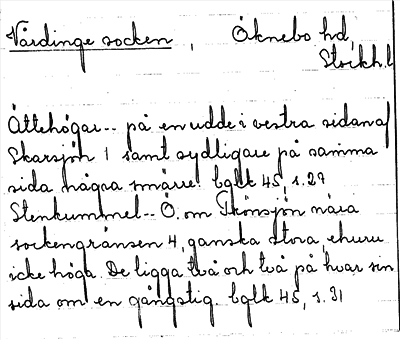 Vårdinge socken, Öknebo hd,
Stockh.l
Ättehögar.. på en udde i vestra sidan af
Skarsjön 1 samt sydligare på samma
sida några smärre. bglk 45, s. 27
Stenkummel.. Ö. om Thönsjön nära
sockengränsen 4, ganska stora, ehuru
icke höga. De ligga två och två på hvar sin
sida om en gångstig. bglk 45, s. 31